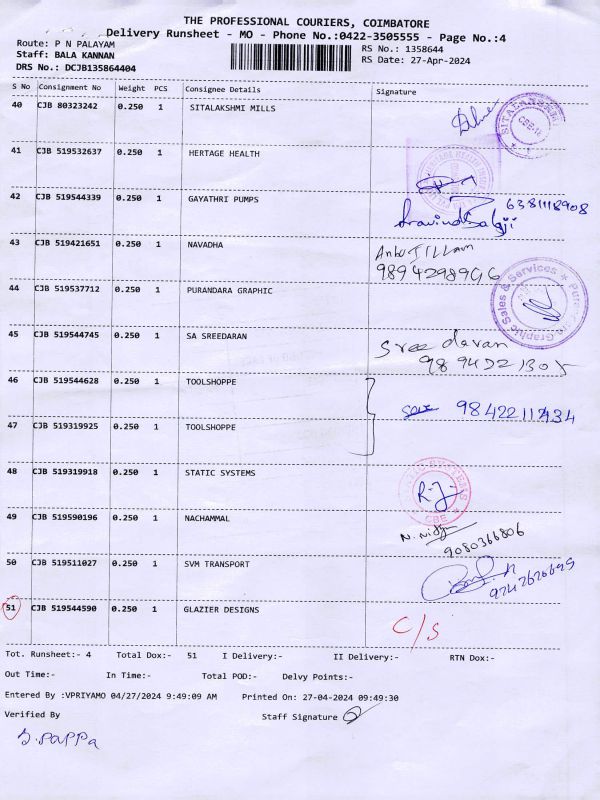 THE PROFESSIONAL COURIERS, COIMBATORE
Delivery Runsheet - MO - Phone No.:0422-3505555 - Page No.:4
Route: P N PALAYAM
RS No.: 1358644
Staff: BALA KANNAN
RS Date: 27-Apr-2024
DRS No.: DCJB135864404
S No Consignment No Weight PCS Consignee Details Signature
40 CJB 80323242 0.250 1 SITALAKSHMI MILLS
41 CJB 519532637 0.250 1 HERTAGE HEALTH
42 CJB 519544339 0.250 1 GAYATHRI PUMPS 6381118908
43 CJB 519421651 0.250 1 NAVADHA
44 CJB 519537712 0.250 1 PURANDARA GRAPHIC
Graphic Sales & Services
45 CJB 519544745 0.250 1 SA SREEDARAN Sree devan
46 CJB 519544628 0.250 1 TOOLSHOPPE
47 CJB 519319925 0.250 1 TOOLSHOPPE
48 CJB 519319918 0.250 1 STATIC SYSTEMS
R.J.
CBE
49 CJB 519590196 0.250 1 NACHAMMAL
9080366806
50 CJB 519511027 0.250 1 SVM TRANSPORT
51 CJB 519544590 0.250 1 GLAZIER DESIGNS C/S
Tot. Runsheet:- 4 Total Dox:- 51 I Delivery:- II Delivery:- RTN Dox:-
Out Time:- In Time:- Total POD:- Delvy Points:-
Entered By :VPRIYAMO 04/27/2024 9:49:09 AM Printed On: 27-04-2024 09:49:30
Verified By Staff Signature
S.PAPPA